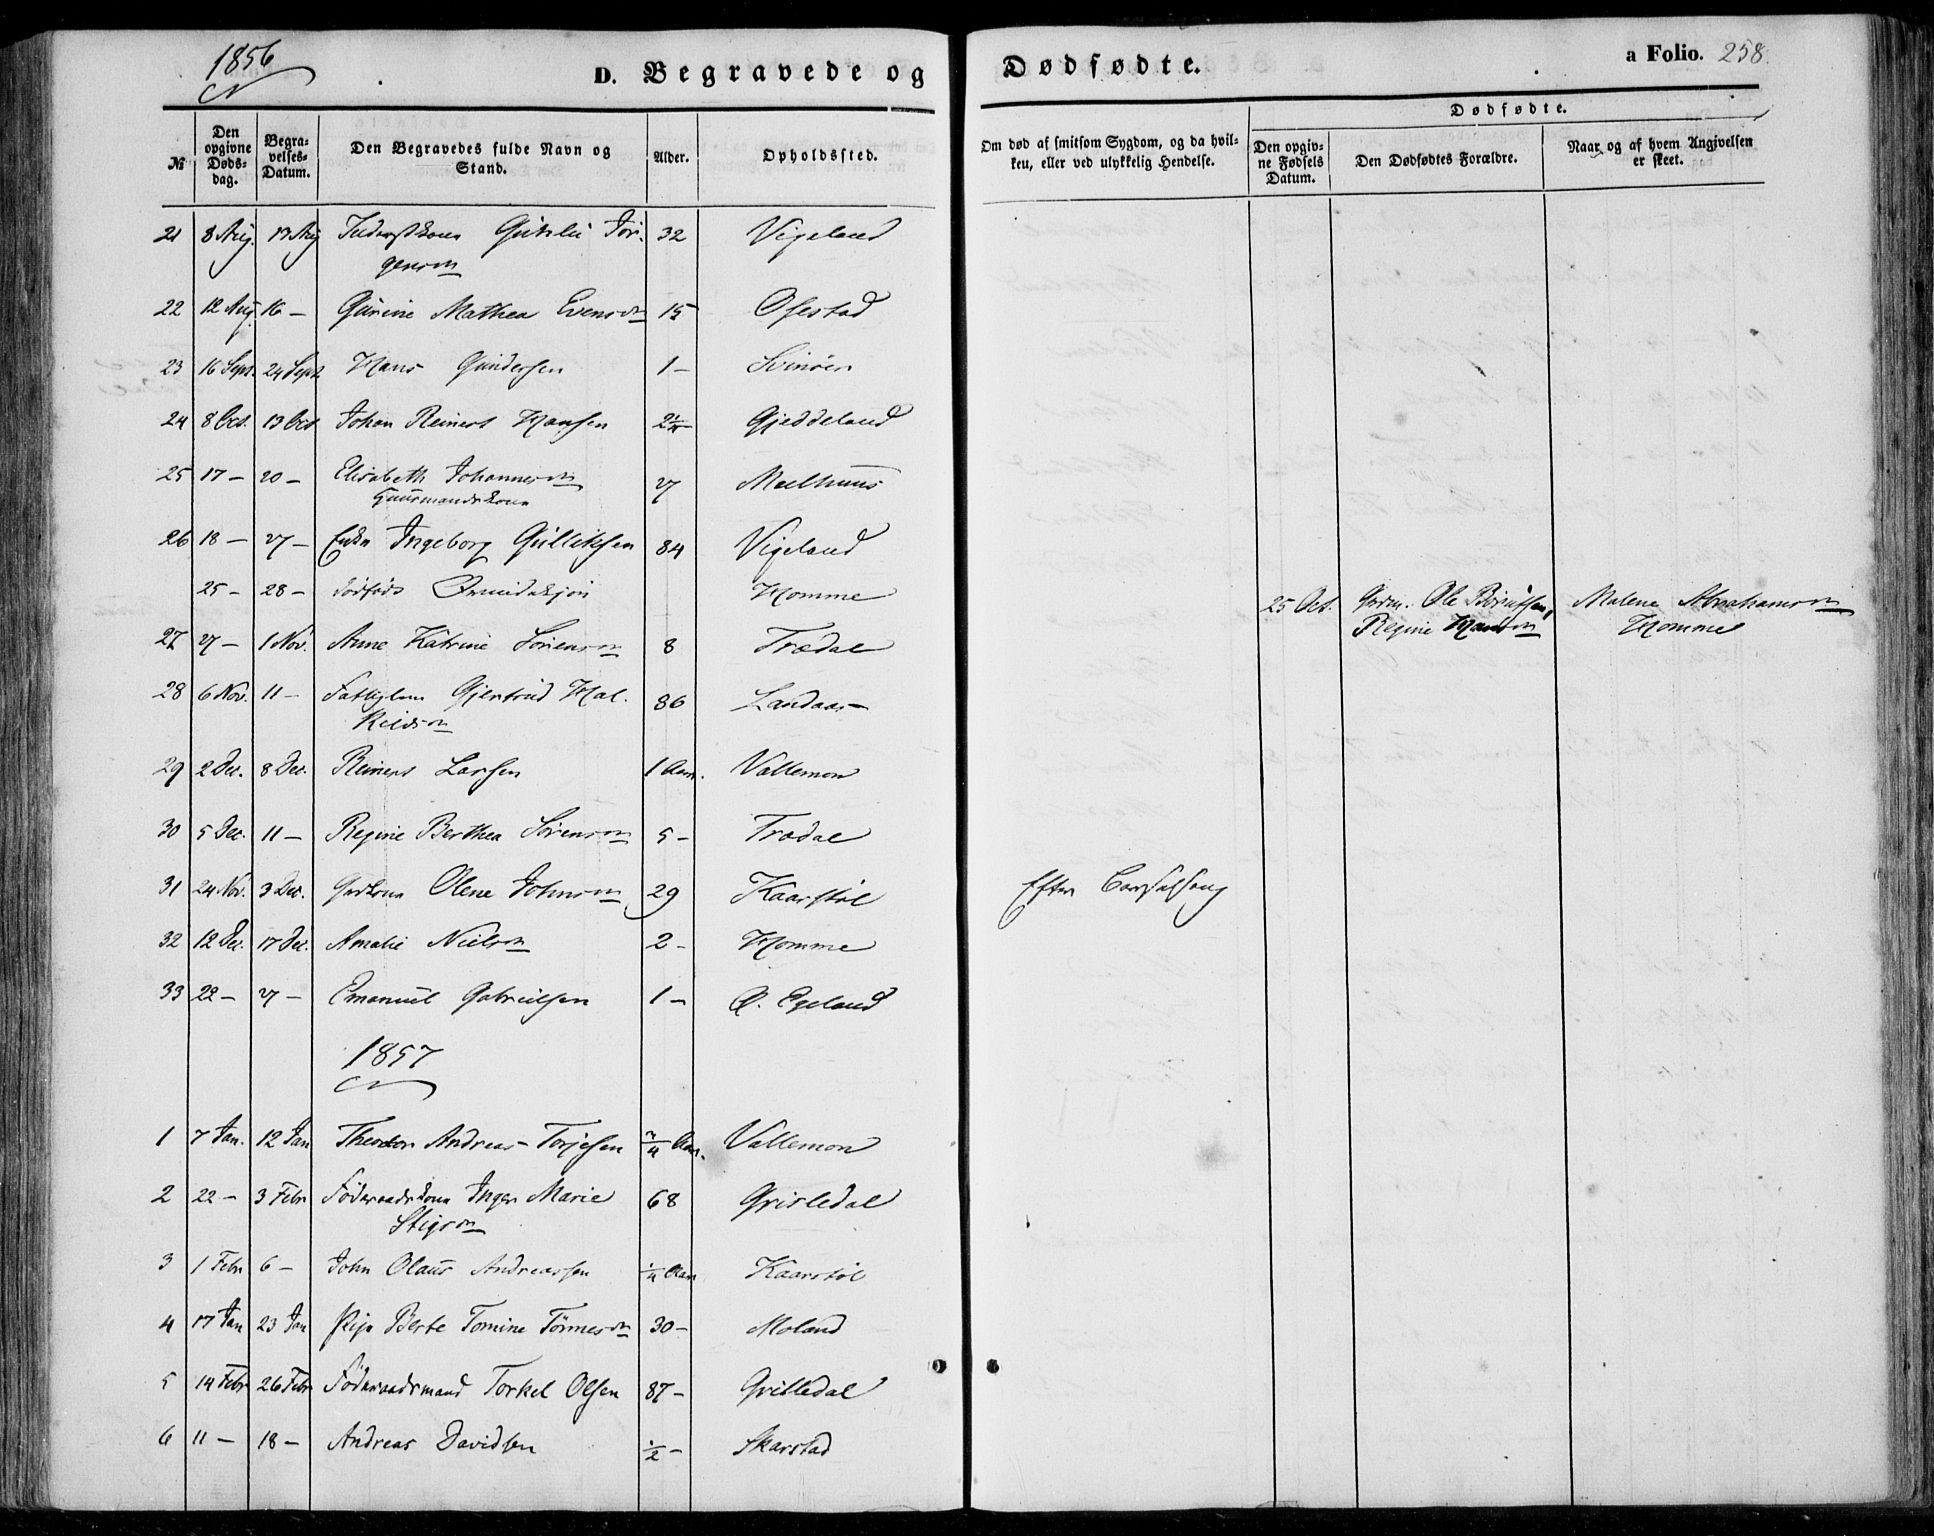 1856
D. Begravede og Dødfødte.
a Folio. 258.
№
Den opgivne Døds-dag.
Begra-velses-Datum.
Den Begravedes fulde Navn og Stand.
Alder.
Opholdssted.
Om død af smitsom Sygdom, og da hvil-ken, eller ved ulykkelig Hendelse.
Dødfødte.
Den opgiv-ne Fødsels Datum.
Den Dødfødtes Forældre.
Naar og af hvem Angivelsen er skeet.
21 8 Aug. 13 Aug Jør- 32 Vigeland
gensen
22 12 Aug. 16 – Gurine Mathea Evens 15 Ofestad
23 16 Sept. 24 Sept Hans Gundersen 1 – Svinøen
24 8 Oct. 13 Oct Johan Reinert Hansen 2 1/4 Gjeddeland
25 17 – 20 – Elisabeth Johannes 27 Melhuus
Huusmandskone
26 18 – 27 – Enke Ingeborg Gulliksen 84 Vigeland
25 – 28 – Dødfødt Homme 25 Oct. Grdm. Ole Malene Abrahams
Regine Hans Homme
27 27 – 1 Nov. Anne Katrine Sørens 8 Trædal
28 6 Nov. 11 – Fattiglem Gjertrud Hal- 86 Landaas
29 2 Dec. 8 Dec. Reinert Larsen 1 Aar. Vallemon
30 5 Dec. 11 – Regine Berthea Sørens 5 – Trædal
31 24 Nov. 3 Dec. Grdkone Olene Johns 29 Kaarstøl Efter Barselseng
32 12 Dec. 17 Dec. Amalie Niels 2 – Homme
33 22 – 27 – Emanuel Gabrielsen 1 – Ø. Egeland
1857
1 7 Jan. 12 Jan Theodor Andreas Torjesen 3/4 Aar. Vallemon
2 22 – 3 Febr Føderaadskone Inger Marie 68 Grisledal
Stigs
3 1 Febr 6 – John Olaus Andreassen 1/4 Aar Kaarstøl
4 17 Jan 23 Jan Pige Berte Tomine Tønnes 30 – Moland
5 14 Febr 26 Febr Føderaadsmand Torkel Olsen 87 – Grisledal
6 11 – 18 – Andreas Davidsen 1/2 – Skarstad